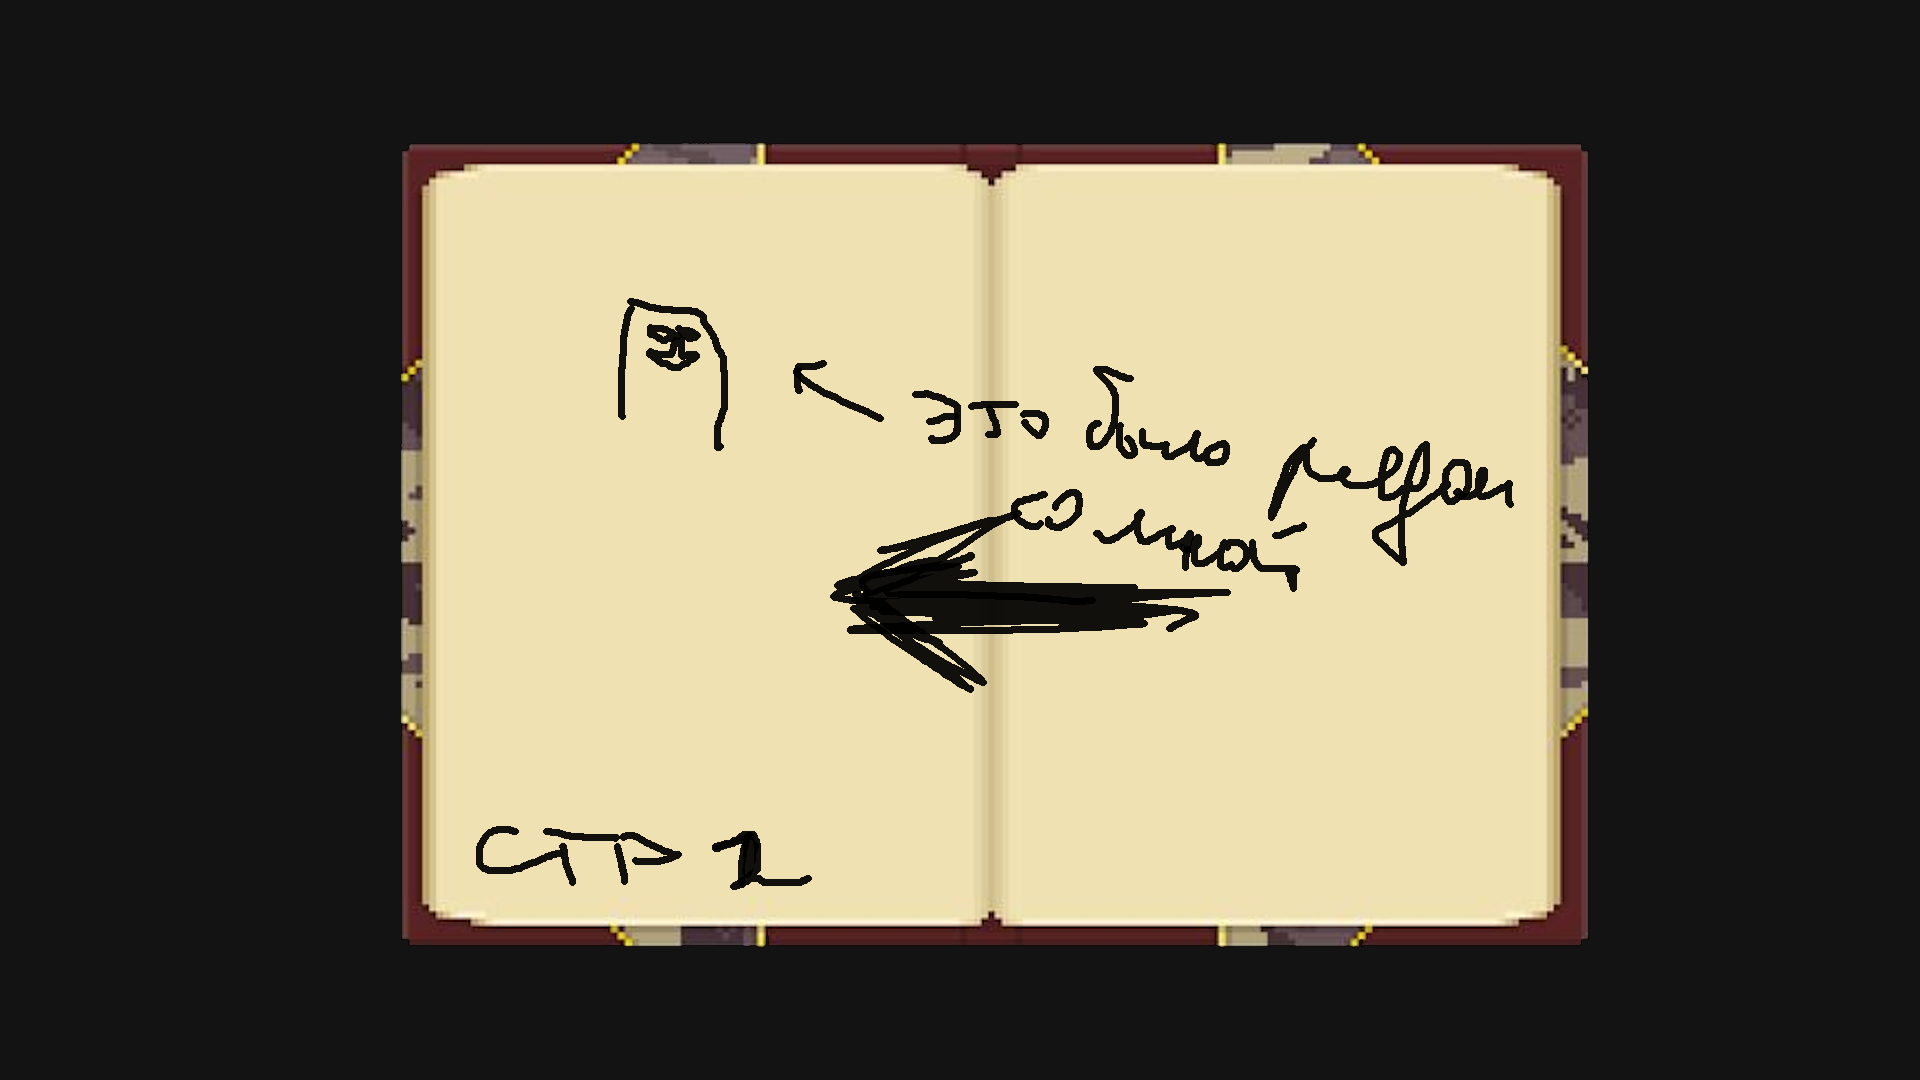 это было рядом
со мной
СТР 1